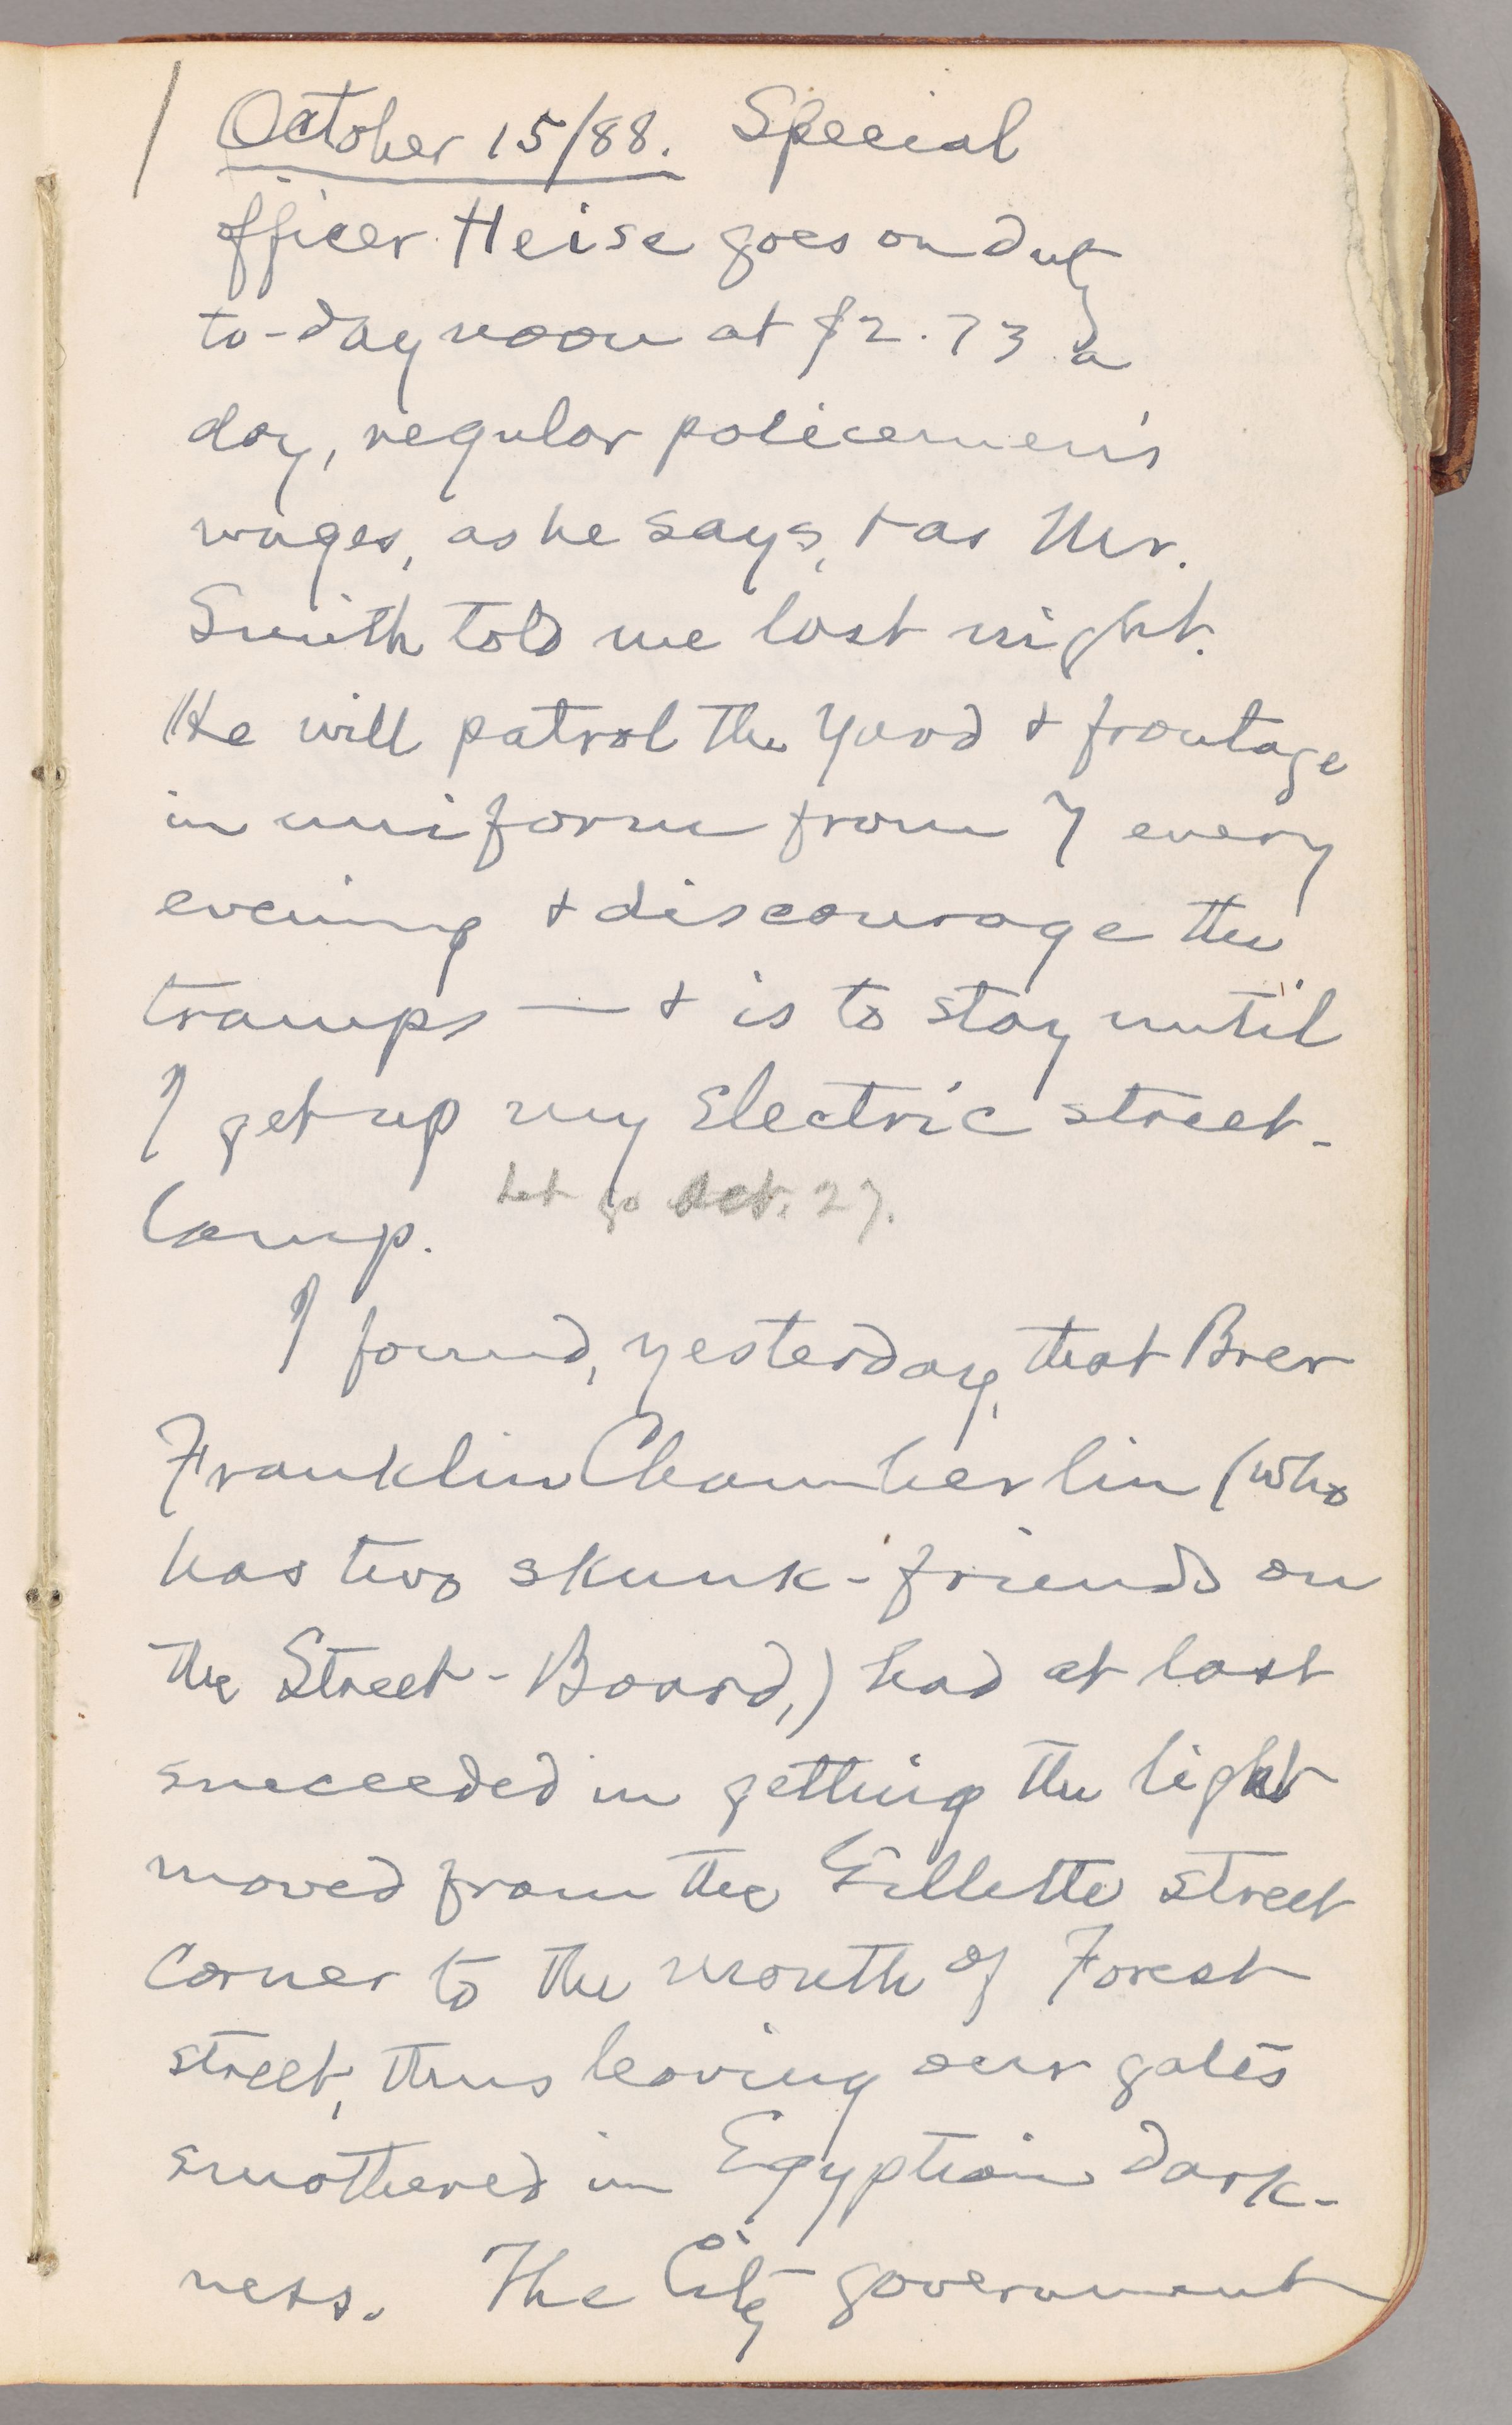 October 15/88. Special
officer Heise goes on duty
to-day noon at $2.73 a
day, regular policemen's
wages, as he says, & as Mr.
Smith told me last night.
He will patrol the yard & frontage
in uniform from 7 every
evening & discourage the
tramps — & is to stay until
I get up my electric street-
lamp. Let go Oct. 27.
I found, yesterday, that Brer
Franklin Chamberlin (who
has two skunk-friends on
the Street-Board,) had at last
succeeded in getting the light
moved from the Gillette street
corner to the mouth of Forest
street, thus leaving our gates
smothered in Egyptian dark-
ness. The City government